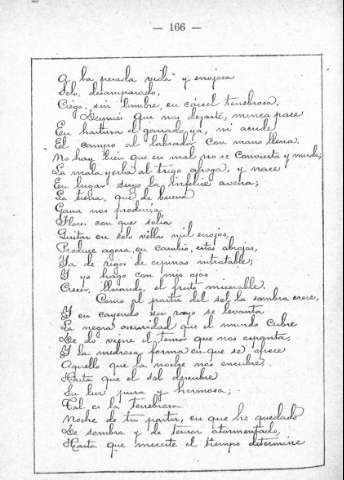 — 166 —
A la pesada vida y enojosa
Solo, desamparado,
Ciego sin lumbre, en cárcel tenebrosa.
Después que nos dejaste, nunca pace
En hartura el ganado ya, ni acude
El campo al labrador con mano llena.
No hay bien que en mal no se convierta y mude;
La mala yerba al trigo ahoga, y nace
En lugar suyo la infelice avena;
La tierra, que de buena
Gana nos producía
Flores con que solía
Quitar en sol vellas mil enojos,
Produce agora, en cambio, estos abrojos,
Ya de rigor de espinas intratable;
Y yo hago con mis ojos
Crecer, llorando, el fruto miserable.
Como al partir del sol la sombra crece,
Y en cayendo su rayo se levanta
La negra oscuridad que el mundo cubre
De do viene el temor que nos espanta,
Y la medrosa forma en que se ofrece
Aquello que la noche nos encubre,
Hasta que el sol descubre
Su luz pura y hermosa;
Tal es la tenebrosa
Noche de tu partir, en que he quedado
De sombra y de temor atormentado,
Hasta que muerte el tiempo determine